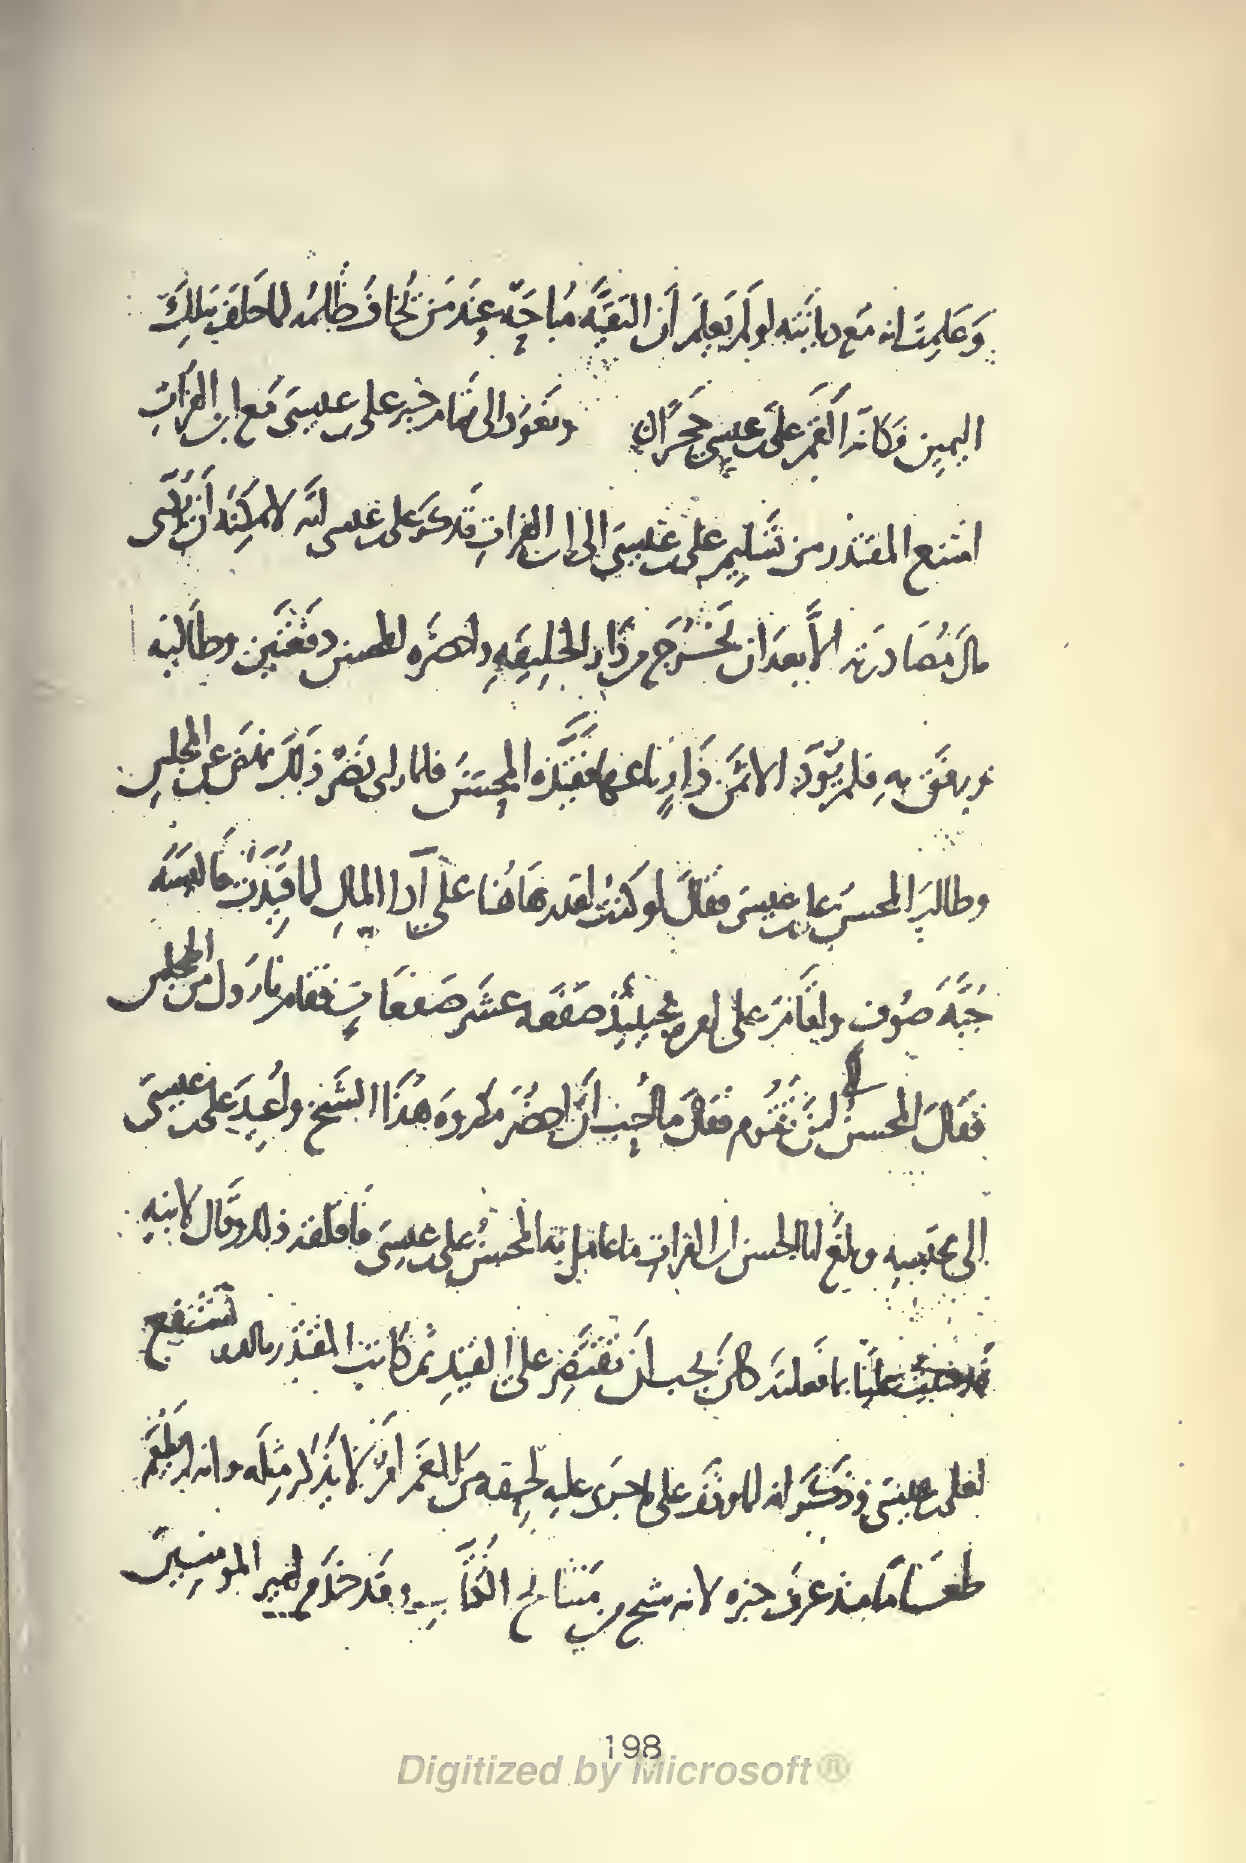 وَعَلِمتَ انه مَع ديانَتِه لو لَم يَعلَم أن التَقيَّه مُباحَةٌ عِندَ مَن يُخافُ ظُلمُه لما حَلفَ بتلكَ
اليمين فكأنّما أَلقَمَ علىُّ بن عيسى حجرًا ونَعُودُ الى تمام خبر على بن عيسى مَع ابن الفراتِ
امتنع المقتدر من تَسليم على بن عيسى الى ابن الفراتِ فذكر على بن عيسى انّه لا يُمكِنُه أن يُؤدّى
مالَ مُصادرته الا بعد ان يَخْرُج من دَار الخليفهِ واحضرَه المحسن دفعتين وطالبَه
ورفق به فلم يُؤَدّ الا ثمن دَارٍ باعها فقَيَّده المحسّنُ فلما رأى نَصْرٌ ذلك نهض عن المجلسِ
وطالبَ المحسن على بن عيسى فقالَ لو كنتُ اقدر هاهُنا على أداء المالِ لما قُيِّدتُ فالبسَهُ
جُبَّهَ صُوفٍ واقامَ على امره فحينئِذٍ صَفَعَه عَشَر صَفعَاتٍ فقام نازوك من المجلس
فقالَ المحسن لِمَ تَقُوم فقال ما أُحِبّ أن احضُر مكروهَ هذا الشيخ واُعِيدَ على بن عيسى
الى محبسِه وبلغ ابا الحسن ابن الفراتِ ما عامل به المحسنُ على بن عيسى فاقلقه ذلك وقال لابنِه
قد جنيتَ علينا بما فعلتَه كان يجب أن تقتصِر على القيد ثم كاتب المقتدر بالله يَشفع
لعلى بن عيسى وذكَر انه لما وقف على ما جرى عليه لَحِقه من الغَمّ امرٌ لا يُذكر مِثله وانه لم يطعَم
طعامًا منذ عرف خبره لانه شيخ من مشايخ الكُتّابِ وقد خدَم امير المومنين
198
Digitized by Microsoft®